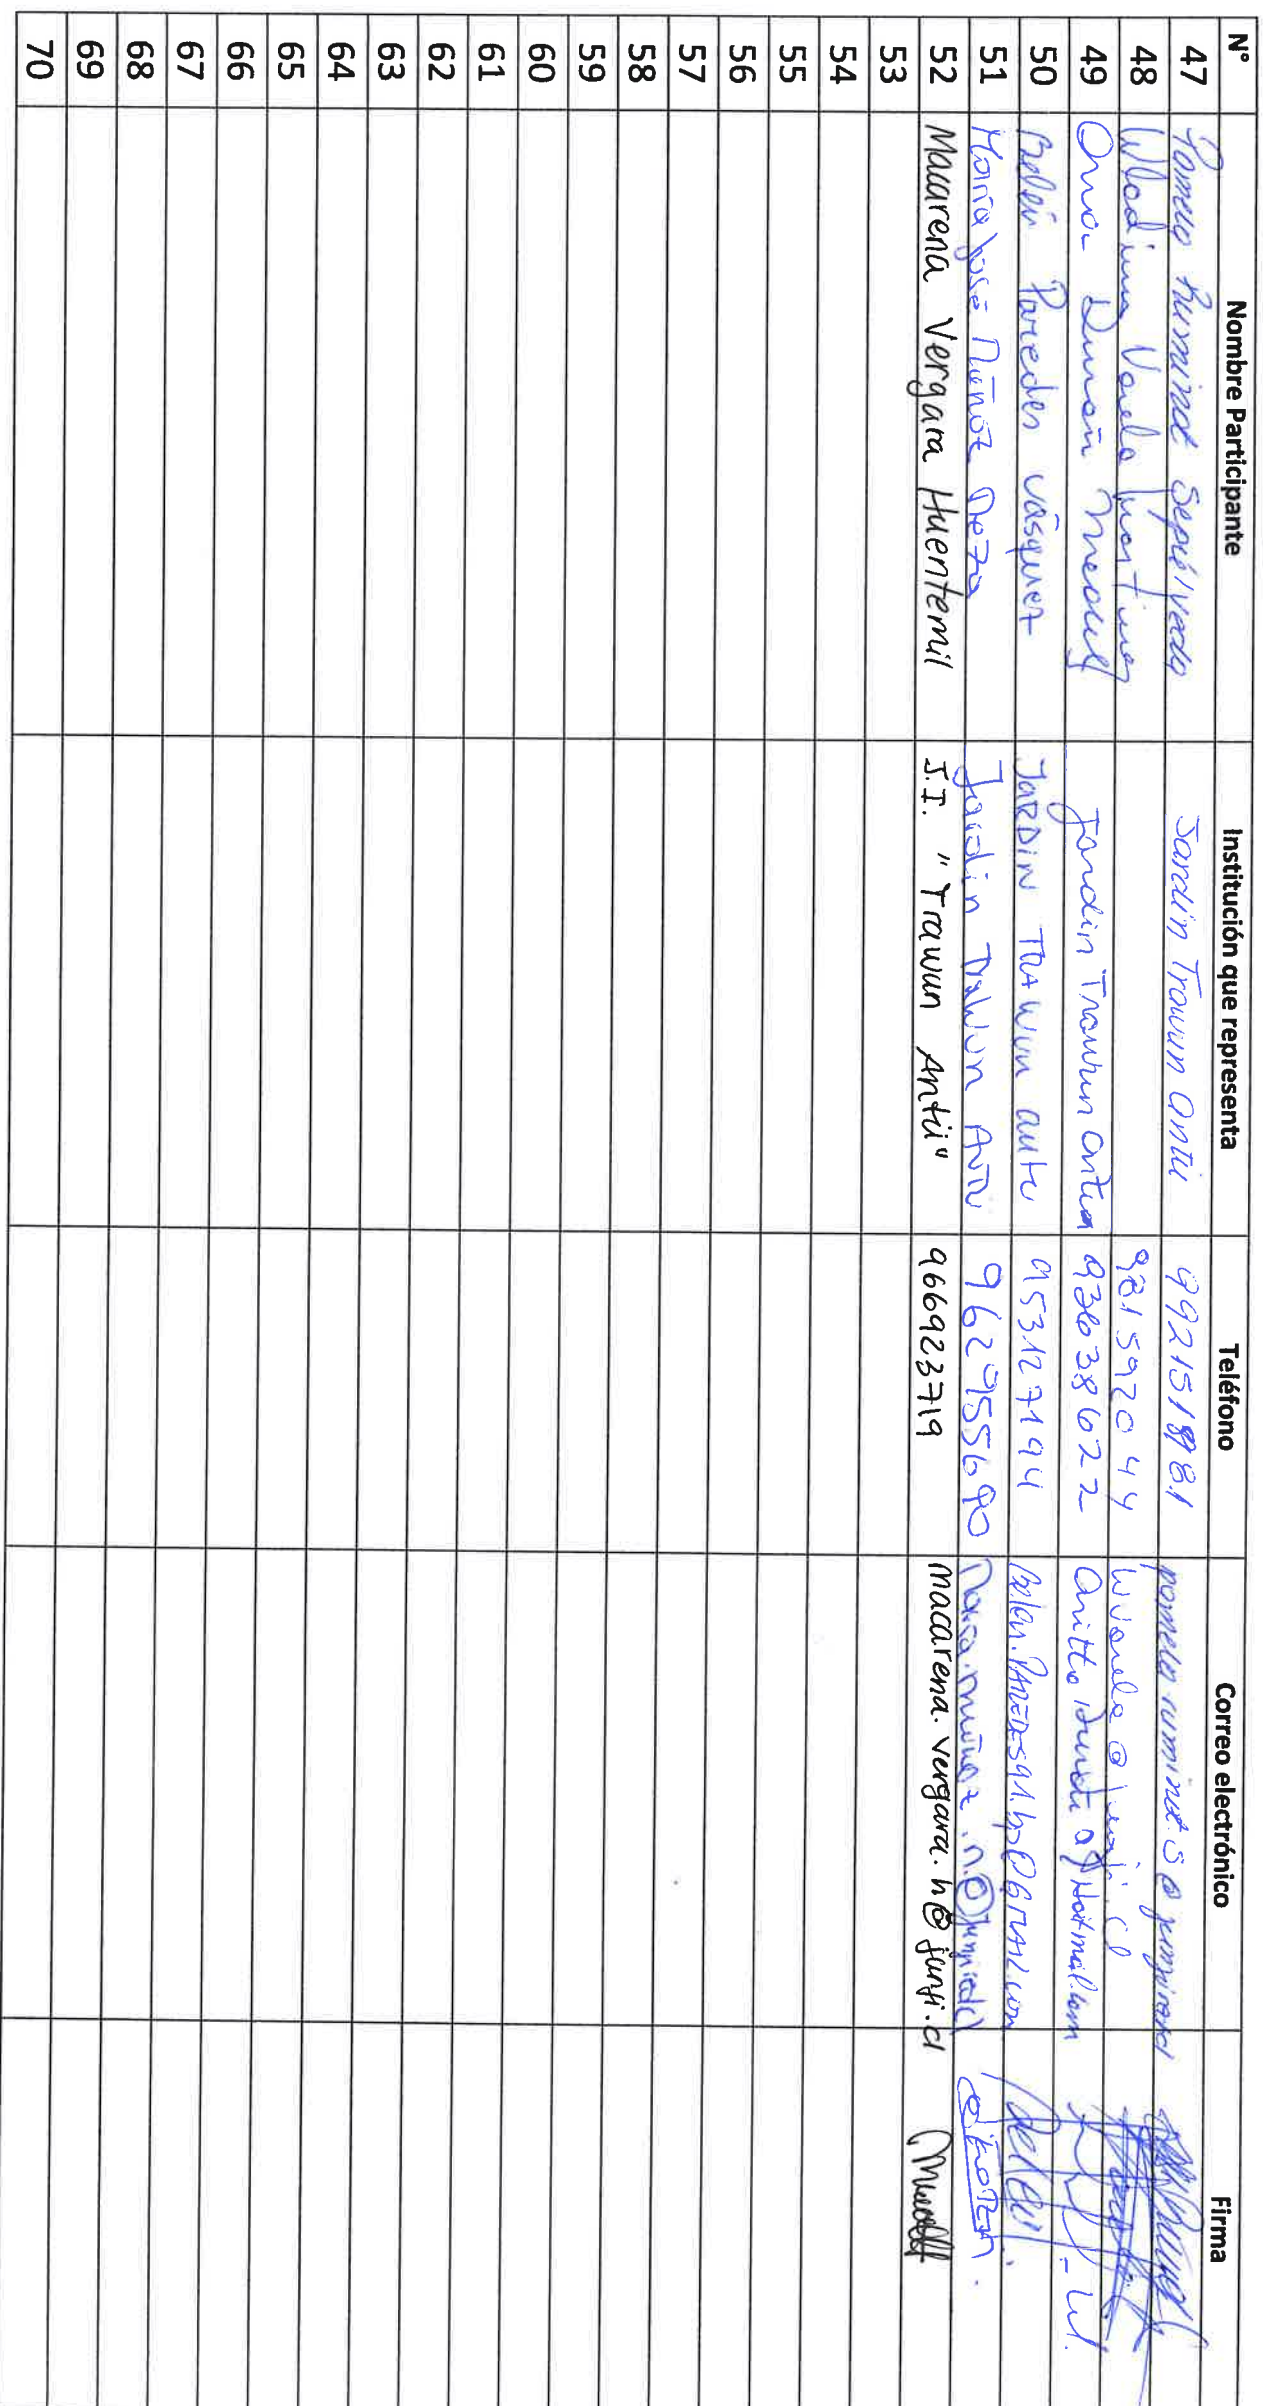 N° Nombre Participante Institución que representa Teléfono Correo electrónico Firma
47 Pamela Ruminot Sepúlveda Jardín Trawun Antü 992151881
48 Wladimir Varela Martinez 981592044 wvarela@junji.cl
49 Duran Jardin Trawun 936038622 Hotmail.com
50 Belén Paredes Vásquez JARDIN TRAWUN antu 953127194 Belen.PAREDES91.bp@GMAIL.com Belén
51 María José Núñoz Meza Jardin Trawun 962955690
52 Macarena Vergara Huentemil J.I. "Trawun Antü" 966923719 macarena.vergara.h@junji.cl
53
54
55
56
57
58
59
60
61
62
63
64
65
66
67
68
69
70